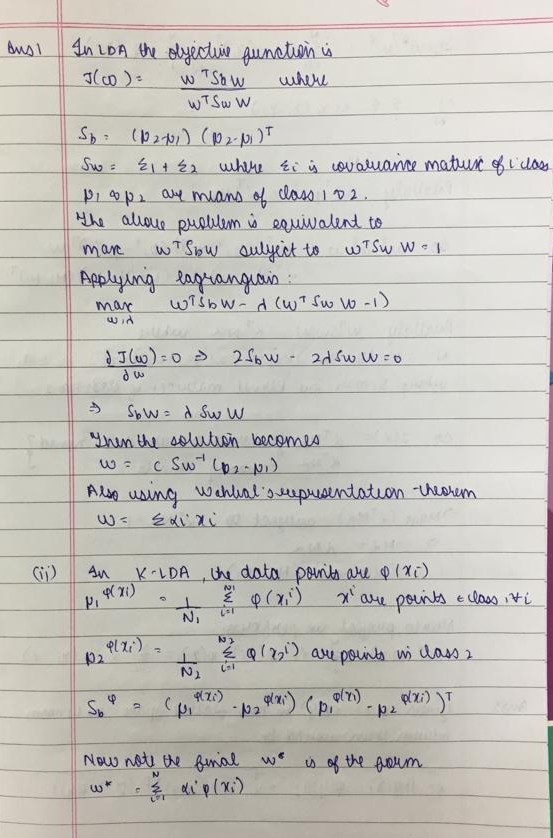 Ans 1 In LDA the objective function is
J(ω) = wᵀSbw / wᵀSwW where
Sb = (μ2-μ1) (μ2-μ1)ᵀ
Sw = Σ1 + Σ2 where Σi is covariance matrix of i class
μ1 & μ2 are means of class 1 & 2.
The above problem is equivalent to
max wᵀSbW subject to wᵀSw W = 1
Applying lagrangian :
max wᵀSbW - λ (wᵀ Sw W - 1)
w,λ
∂J(ω)/∂w = 0 ⇒ 2SbW - 2λSwW = 0
⇒ SbW = λ SwW
Then the solution becomes
w = c Sw⁻¹ (μ2-μ1)
Also using representation theorem
w = Σ αi xi
(ii) In K-LDA, the data points are φ(xi)
μ1^φ(xi) = 1/N1 Σ_{i=1}^{N1} φ(x1^i) xi are points ∈ class 1 ∀i
μ2^φ(xi) = 1/N2 Σ_{i=1}^{N2} φ(x2^i) are points in class 2
Sb^φ = (μ1^φ(xi) - μ2^φ(xi)) (μ1^φ(xi) - μ2^φ(xi))ᵀ
Now note the final w* is of the form
w* = Σ_{i=1}^{N} αi φ(xi)